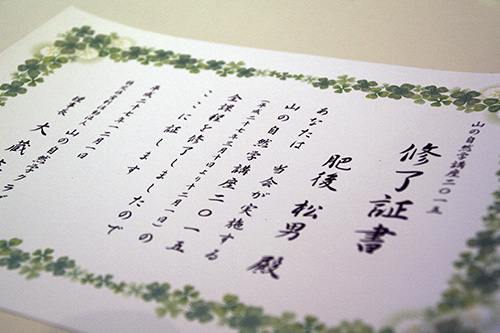 山の自然学講座二〇一五
修了証書
肥後 松男 殿
あなたは 当会が実施する
山の自然学講座二〇一五
(平成二十七年三月十日より十二月一日)の
全課程を修了しましたので
ここに証します
平成二十七年十二月一日
特定非営利活動法人
山の自然学クラブ
理事長 大蔵